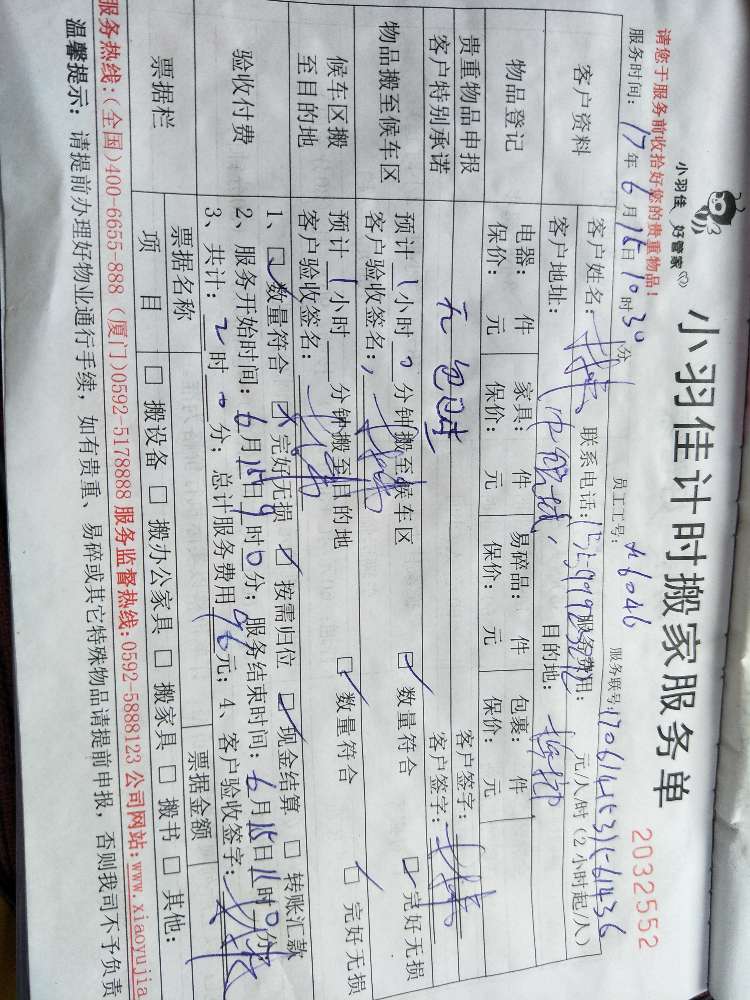 小羽佳 好管家
小羽佳计时搬家服务单
2032552
请您于服务前收拾好您的贵重物品!
服务时间: 17年6月15日10时30分 员工工号: 服务联号:
客户资料
客户姓名: 联系电话: 服务费用: 元/人/时(2小时起/人)
客户地址: 目的地:
物品登记
电器: 件 家具: 件 易碎品: 件 包裹: 件
保价: 元 保价: 元 保价: 元 保价: 元
贵重物品申报 客户签字:
客户特别承诺 客户签字:
物品搬至候车区
预计1小时0分钟搬至候车区 数量符合 完好无损
客户验收签名:
候车区搬至目的地
预计1小时 分钟搬至目的地 数量符合 完好无损
客户验收签名:
验收付费
1、数量符合 完好无损 按需归位 现金结算 转账汇款
2、服务开始时间: 6月15日9时0分; 服务结束时间: 6月15日11时0分
3、共计: 2时0分; 总计服务费用 元; 4、客户验收签字:
票据栏
票据名称 票据金额
项目 搬设备 搬办公家具 搬家具 搬书 其他:
服务热线:(全国)400-6655-888 (厦门)0592-5178888 服务监督热线:0592-5888123 公司网站:www.xiaoyujia
温馨提示: 请提前办理好物业通行手续, 如有贵重、易碎或其它特殊物品请提前申报, 否则我司不予负责